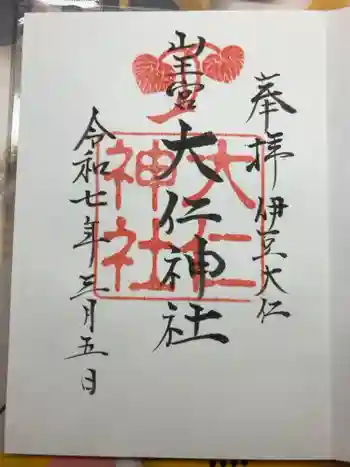 奉拝 伊豆大仁
山王宮
大仁神社
大仁
神社
令和七年三月五日